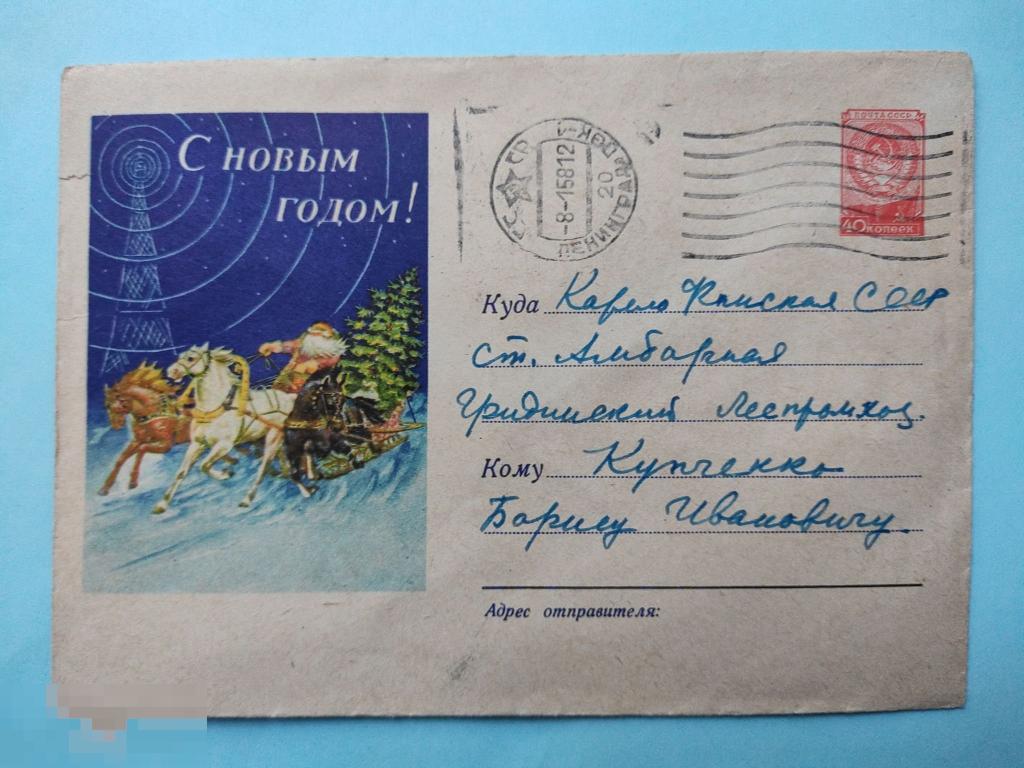 С НОВЫМ
ГОДОМ!
СССР
-8-1 58 12
ЛЕНИНГРАД
20
ПОЧТА СССР
40 КОПЕЕК
Куда Карело Финская ССР
ст. Амбарная
Гридинский Леспромхоз.
Кому Купченко
Борису Ивановичу
Адрес отправителя: